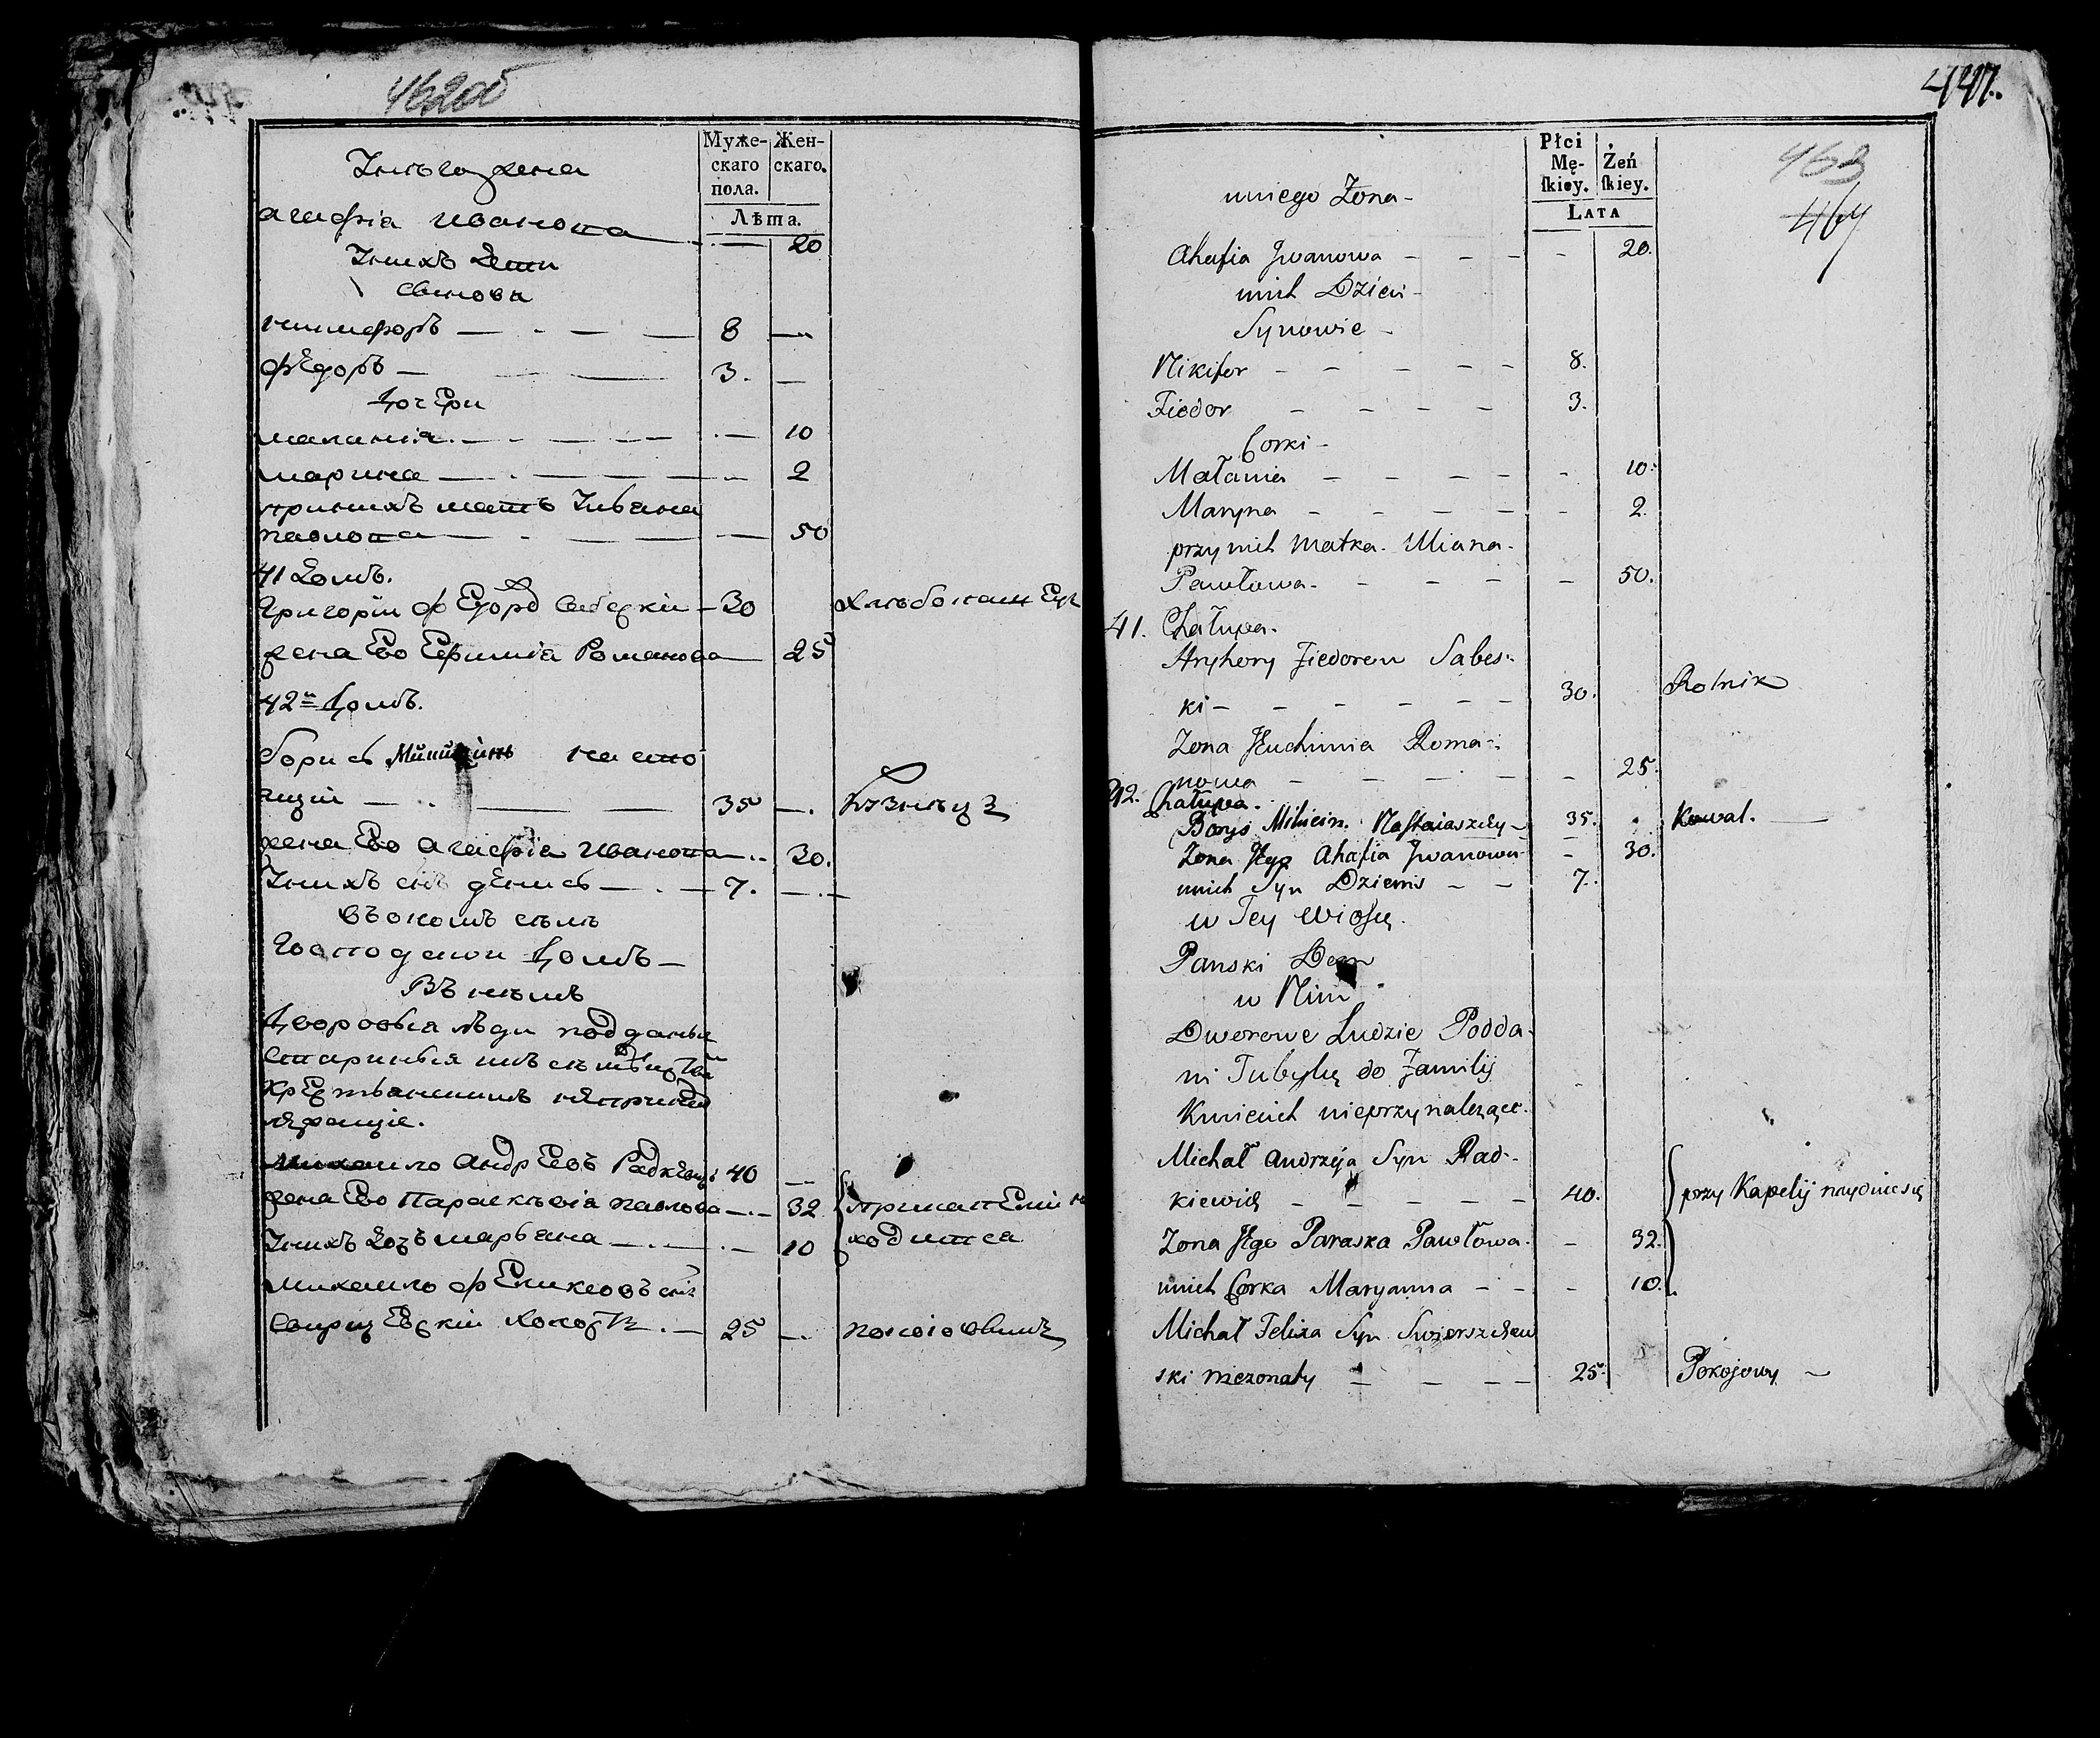 462об
Муже- Жен-
скаго скаго.
пола.
Лѣта.
У него жена
Агафіа Иванова — 20
У нихъ дети
Сыновя
Никифоръ — 8 —
Федоръ — 3. —
Дочери
Маланіа — 10
Марина — 2
при нихъ мать Ульяна
Павлова — 50
41 домъ.
Григорій Федоровъ Сабескій — 30 Хлебопашецъ
жена Ево Ефимиа Романова — 25
42й домъ.
Борисъ Настоя
щій — 35 —. Кузнецъ
жена Ево Агафіа Иванова — 30.
У нихъ сынъ Денисъ — 7. —
Въ ономъ селе
Господской домъ —
Въ немъ
Дворовыа люди подданыя
Старинныя
Крестьянскимъ непринад
лежащіе.
Михаило Андреевъ Радкевичъ 40 —
жена Ево Параскевіа Павлова — 32 при капеліи на
У нихъ дочь Марьяна — 10 ходитса
Михаило Феликсовъ сынъ
Свирщевскій холостъ — 25 —. покоіовымъ
447.
463
464
Płci Żeń
Mę- ſkiey.
ſkiey.
LATA
uniego Zona -
Ahafia Jwanowa - - - - 20.
unich Dzieci -
Synowie -
Nikifor - - - - - 8.
Fiedor - - - - 3.
Corki -
Małania - - - - - 10.
Maryna - - - - - 2.
przy nich Matka. Uliana -
Pawłowa - - - - - 50.
41. Chałupa.
Hryhory Fiedorow Sabes-
ki - - - - - - 30. Rolnik
Zona Jego Euchimia Roma-
nowa - - - - - 25.
42. Chałupa.
Borys Nastaiaszczy - 35. Kowal. —
Zona Jego Ahafia Jwanowa - 30.
unich Syn Dzienis - - 7.
w Tey Wiosce.
Panski Dom
w Nim
Dworowe Ludzie Podda-
ni Tubylcy do Familij
Kmiecich nieprzynależące.
Michał Andrzeja Syn Rad-
kiewicz - - - - - 40. przy Kapelij nayduie się
Zona Jego Paraska Pawłowa - - 32.
unich Corka Maryanna - - - 10.
Michał Felixa Syn Swierszczew
ski niezonaty - - - - 25. Pokojowy -